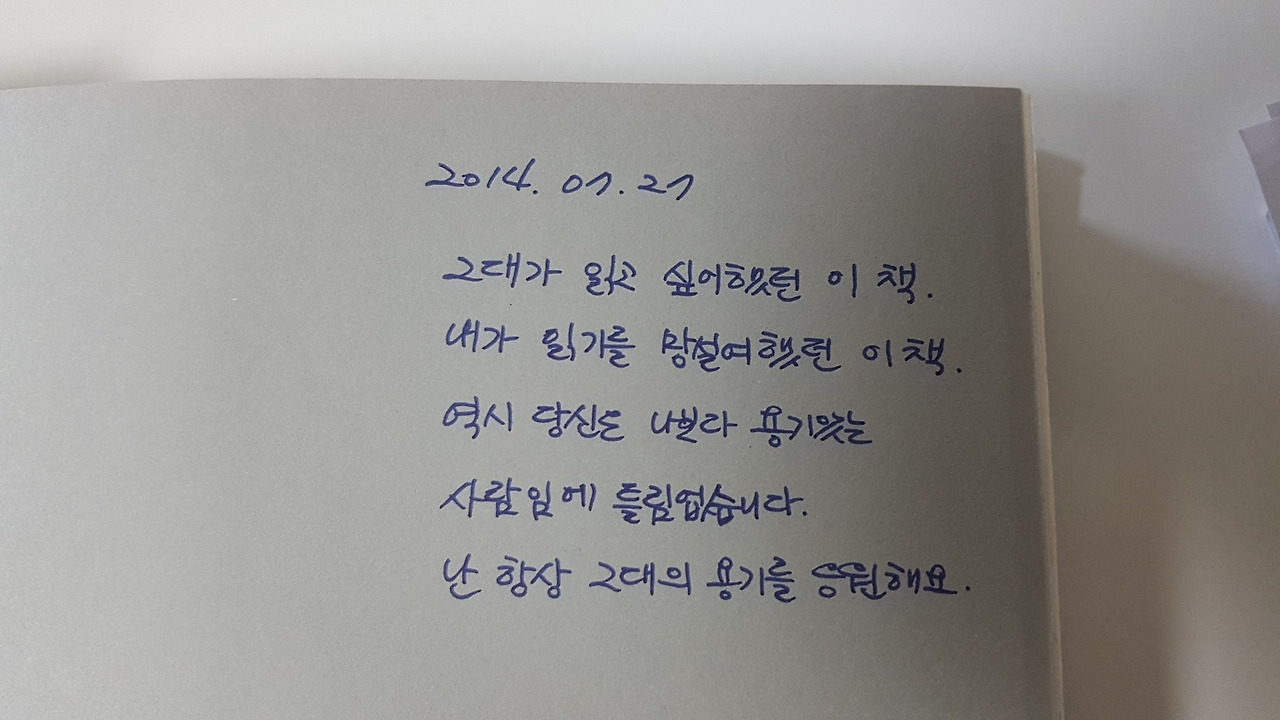 2014. 07. 27
그대가 읽고 싶어했던 이 책.
내가 읽기를 망설여했던 이 책.
역시 당신은 나보다 용기있는
사람임에 틀림없습니다.
난 항상 그대의 용기를 응원해요.